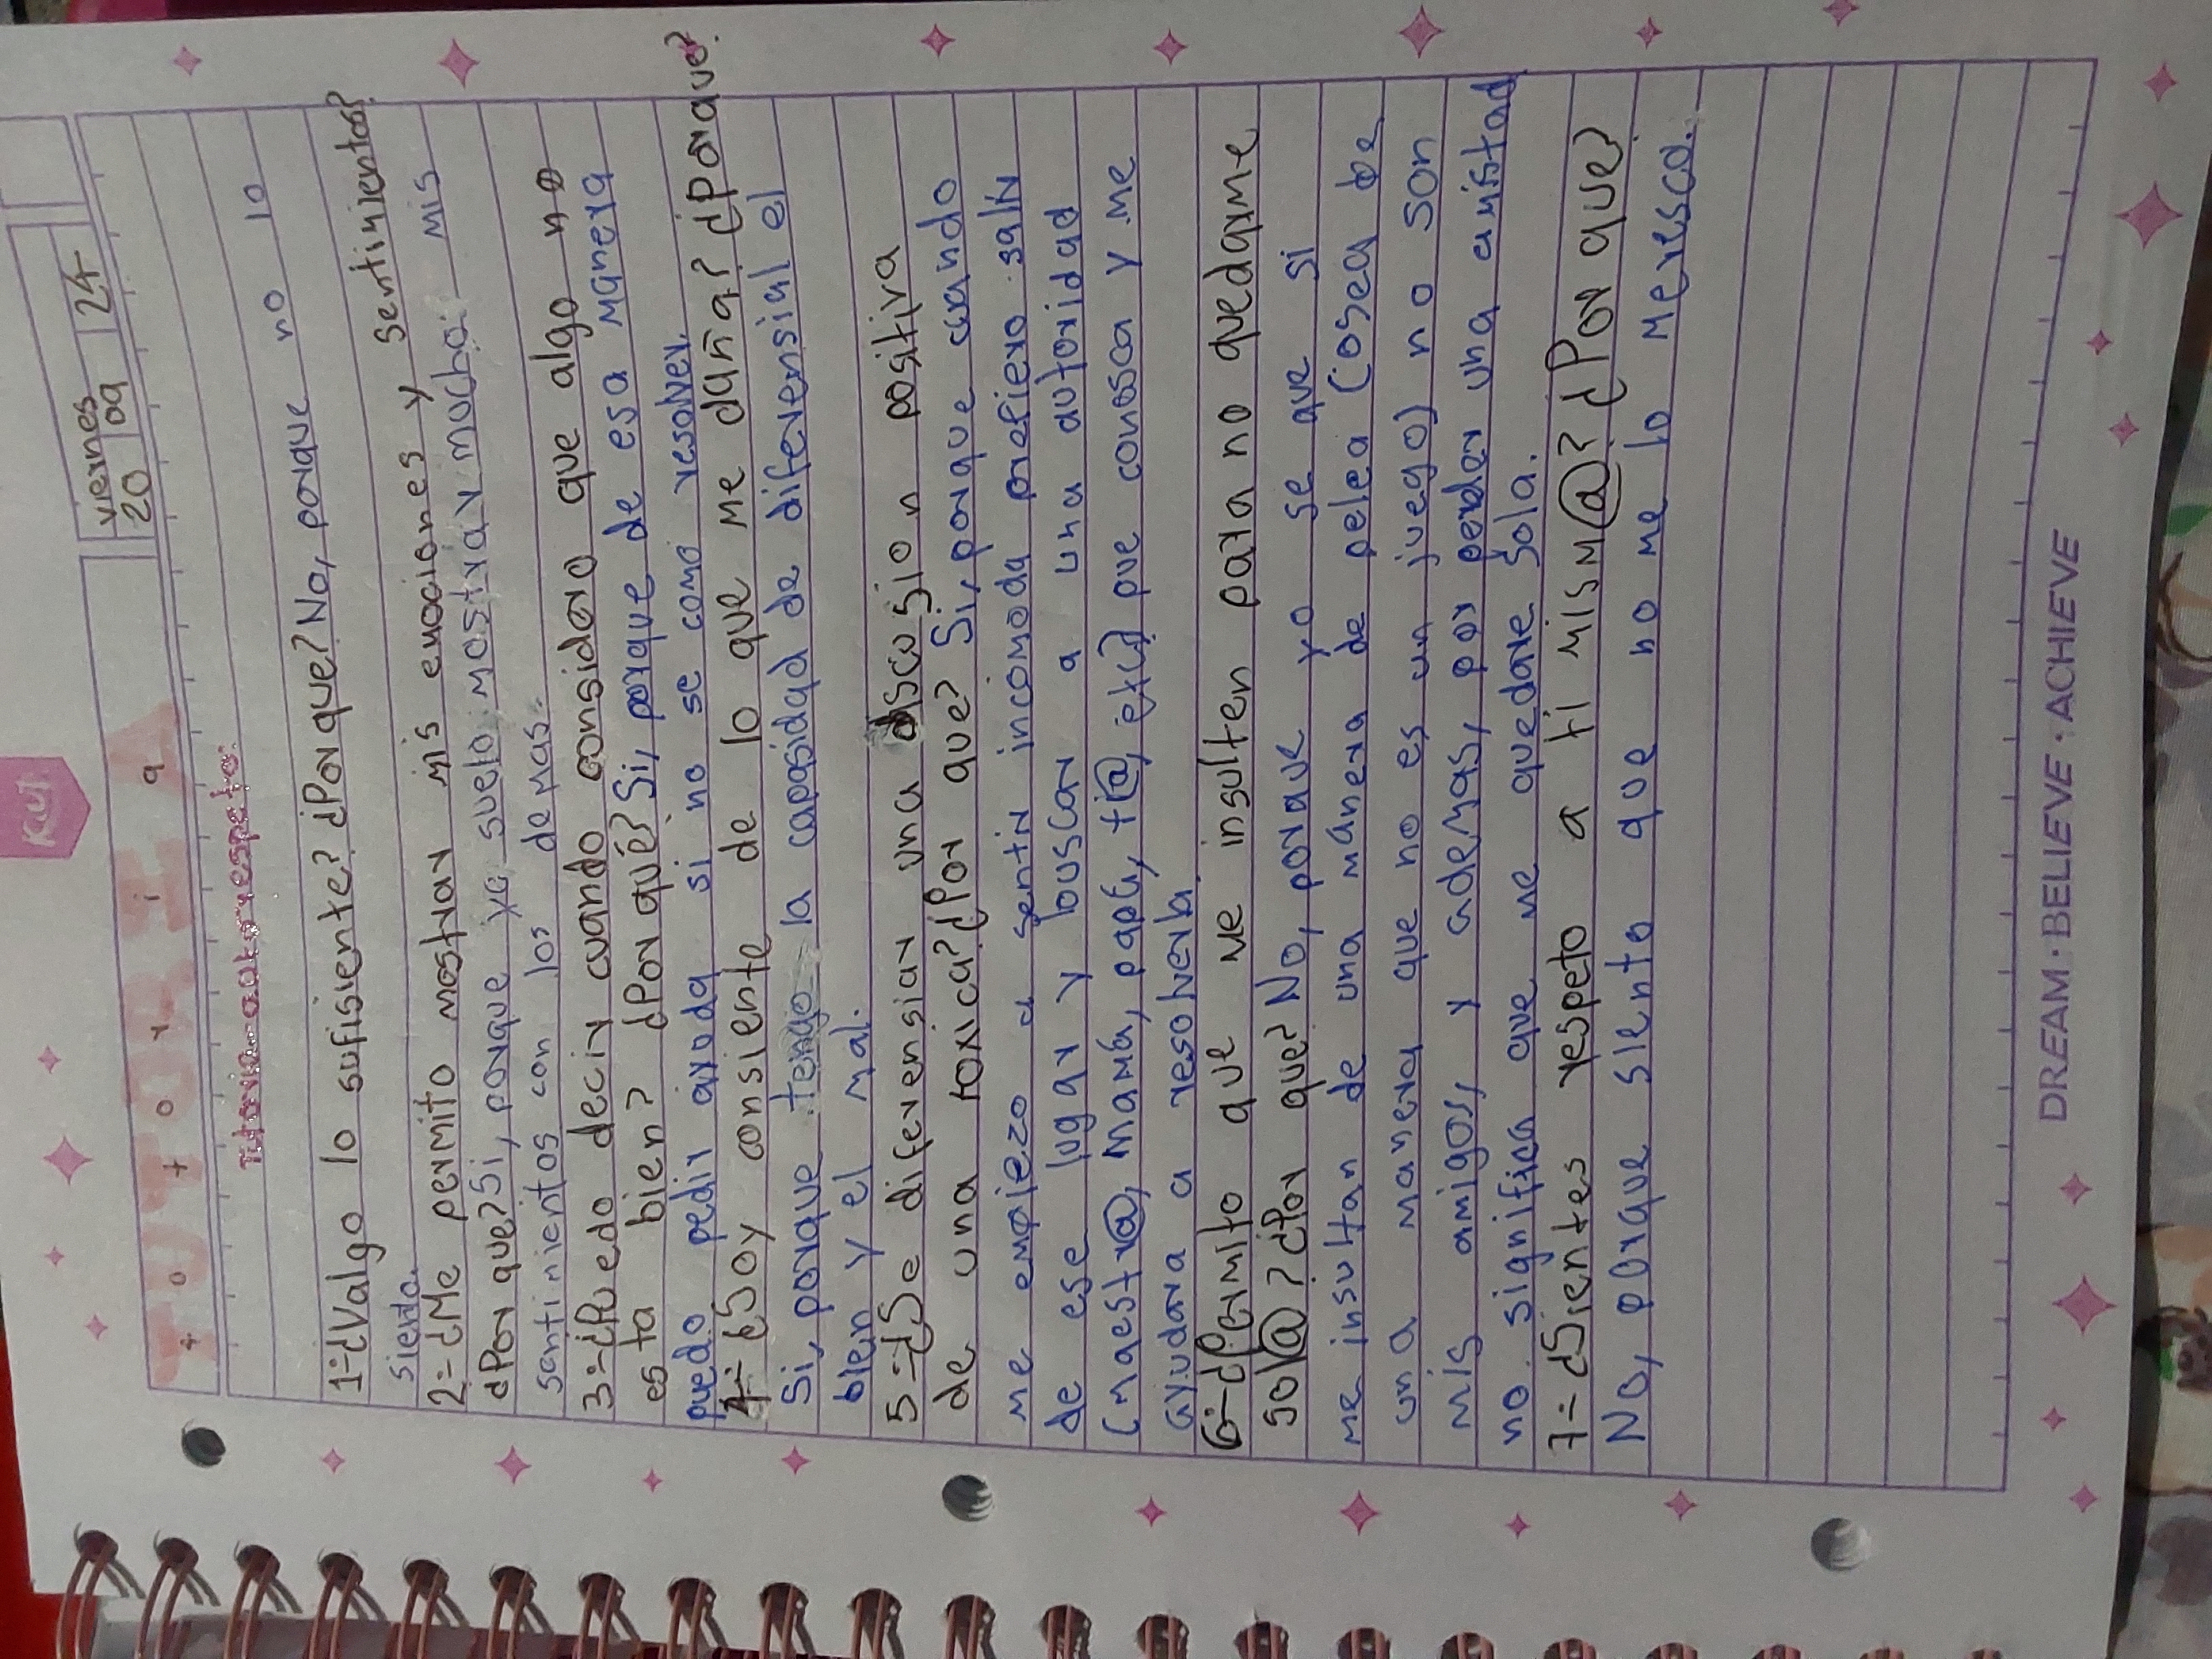 Kiut
viernes
20 09 24
TUTORIA
tutoria
Tutoria autorrespeto.
1=¿Valgo lo sufisiente? ¿Por que? No, porque no lo
siento.
2=¿Me permito mostrar mis emociones y sentimientos?
¿Por que? Si, porque yo suelo mostrar mucho mis
santimientos con los demas.
3=¿Puedo decir cuando considero que algo no
esta bien? ¿Por qué? Si, porque de esa manera
puedo pedir ayuda si no se como resolver.
4=¿Soy consiente de lo que me daña? ¿Porque?
Si, porque tengo la capasidad de diferensial el
bien y el mal.
5=¿Se diferensiar una discusion positiva
de una toxica? ¿Por que? Si, porque cuando
me empiezo a sentir incomoda prefiero salir
de ese lugar y buscar a una autoridad
(maestr@, mamá, papá, ti@, etc) que conosca y me
ayudara a resolverla.
6=¿Permito que me insulten para no quedarme
sol@? ¿Por que? No, porque yo se que si
me insultan de una manera de pelea (osea de
una manera que no es un juego) no son
mis amigos, y ademas, por perder una amistad
no significa que me quedare sola.
7=¿Sientes respeto a ti mism@? ¿Por que?
No, porque siento que no me lo meresco.
DREAM·BELIEVE·ACHIEVE